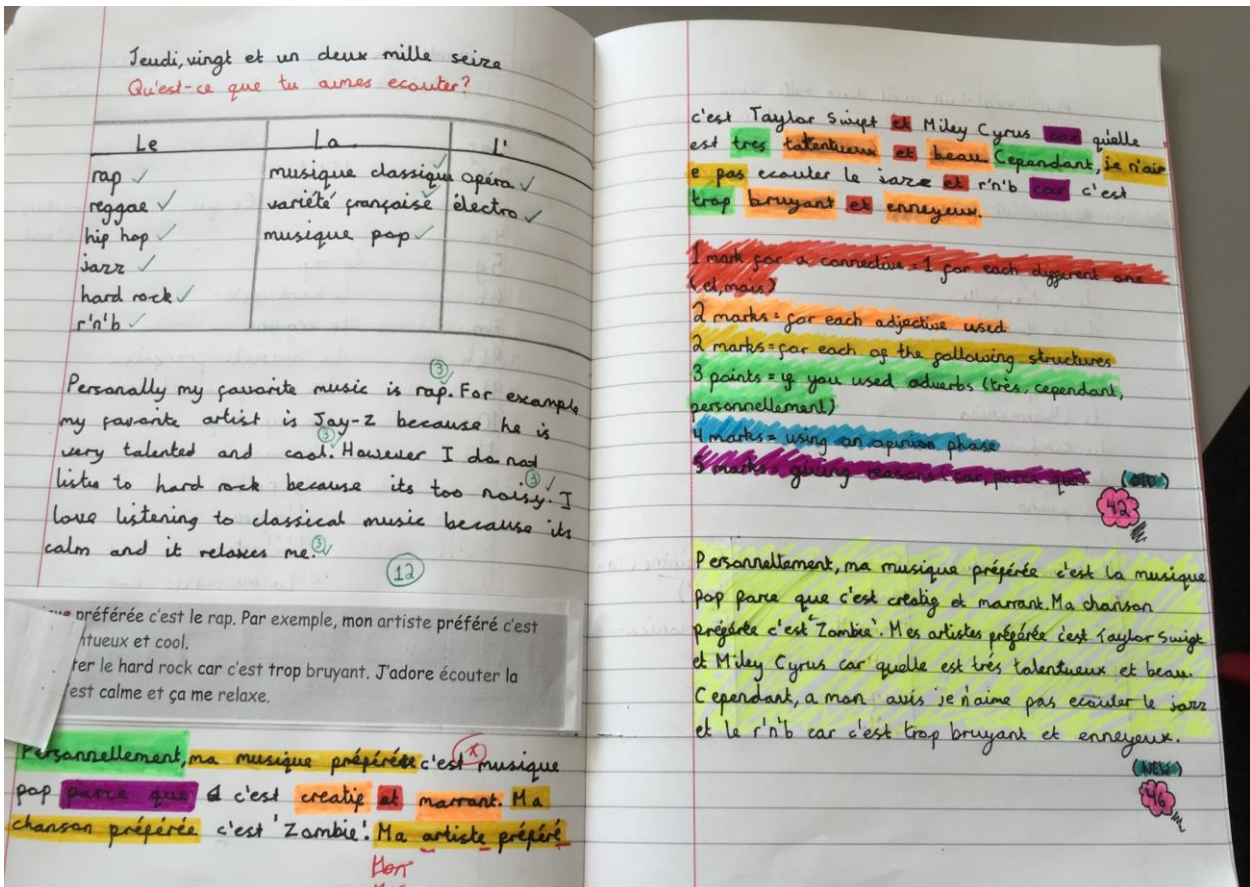 Jeudi, vingt et un deux mille seize
Qu'est-ce que tu aimes ecouter?
Le La L'
rap ✓ musique classique ✓ opéra ✓
reggae ✓ variété française ✓ électro ✓
hip hop ✓ musique pop ✓
jazz ✓
hard rock ✓
r'n'b ✓
Personally my favorite music is rap. ③✓ For example
my favorite artist is Jay-Z because he is
very talented and cool. ③✓ However I do not
listen to hard rock because its too noisy. ③✓ I
love listening to classical music because its
calm and it relaxes me. ③✓
12
préférée c'est le rap. Par exemple, mon artiste préféré c'est
ntueux et cool.
ter le hard rock car c'est trop bruyant. J'adore écouter la
est calme et ça me relaxe.
Personnellement, ma musique préférée c'est musique
pop parce que c'est creatif et marrant. Ma
chanson préférée c'est 'Zombie'. Ma artiste préféré
Mon
c'est Taylor Swift et Miley Cyrus car qu'elle
est tres talentueux et beau. Cependant, je n'aim
e pas ecouter le jazz et r'n'b car c'est
trop bruyant et enneyeux.
1 mark for a connective = 1 for each different one
(et, mais)
2 marks = for each adjective used
2 marks = for each of the following structures
3 points = if you used adverbs (très, cependant,
personnellement)
4 marks = using an opinion phase
5 marks = giving reasons (car, parce que)
(OLD)
42
Personnellement, ma musique préférée c'est la musique
pop parce que c'est creatif et marrant. Ma chanson
préférée c'est 'Zombie'. Mes artistes préférée c'est Taylor Swift
et Miley Cyrus car quelle est trés talentueux et beau.
Cependant, a mon avis je n'aime pas ecouter le jazz
et le r'n'b car c'est trop bruyant et enneyeux.
(NEW)
46